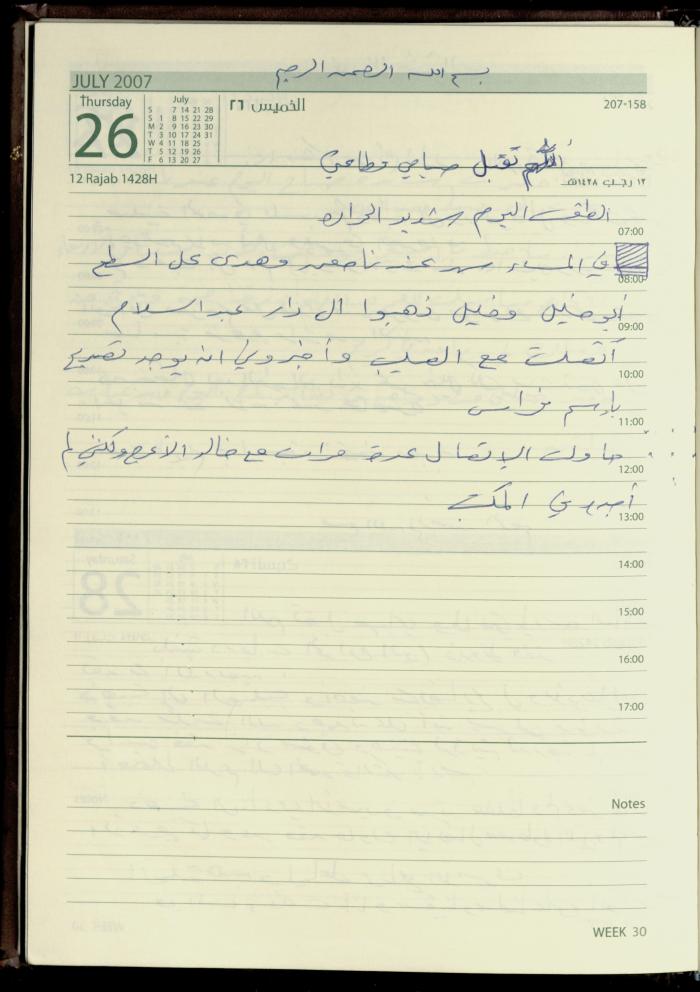 بسم الله الرحمن الرحيم
JULY 2007
Thursday
26
July
S 7 14 21 28
S 1 8 15 22 29
M 2 9 16 23 30
T 3 10 17 24 31
W 4 11 18 25
T 5 12 19 26
F 6 13 20 27
الخميس ٢٦
207-158
اللهم تقبل صيامي وطاعتي
12 Rajab 1428H
١٢ رجب ١٤٢٨هـ
الطقس اليوم شديد الحرارة
07:00
في المساء سهر عند ناصر وهدى على السطح
08:00
أبو خليل وخليل ذهبوا الى دار عبد السلام
09:00
أتصلت مع الصليب وأخبروني انه يوجد تصريح
10:00
بإسم فراس
11:00
حاولت الإتصال عدة مرات مع خالد الأعرج ولكنني لم
12:00
أجد في المكتب
13:00
14:00
15:00
16:00
17:00
Notes
WEEK 30